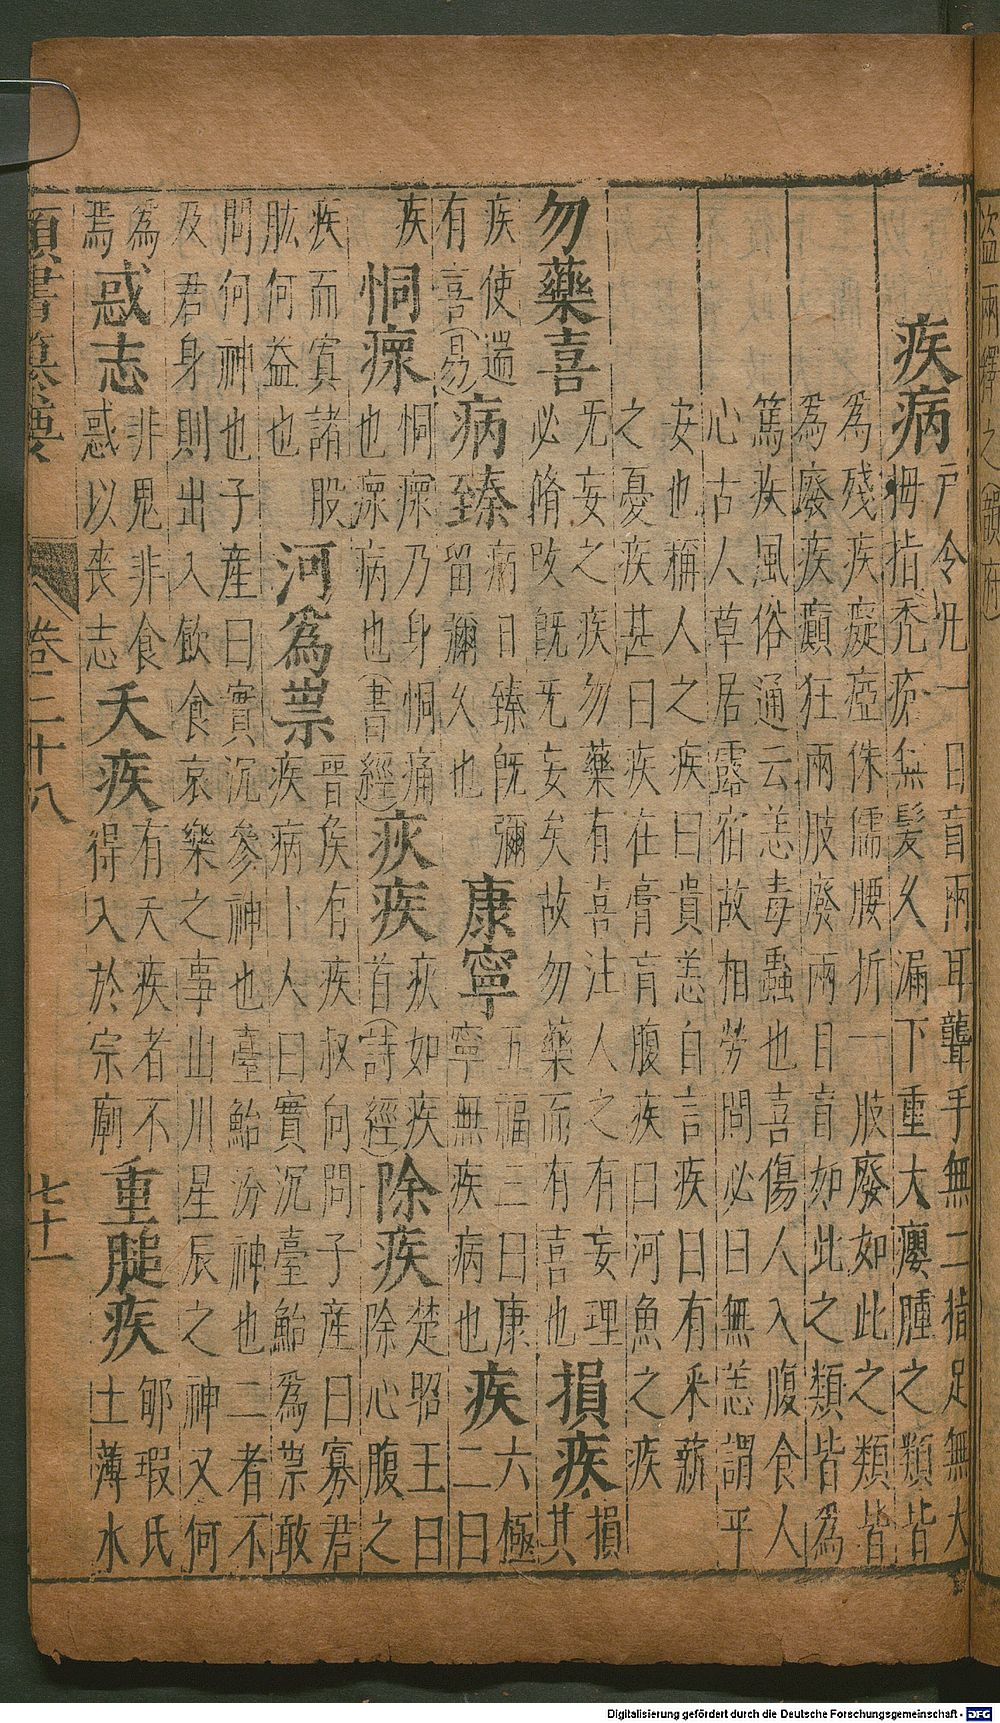 盜兩繹之(韻府)
疾病
戶令凡一目盲兩耳聾手無二指足無大
拇指禿瘡無髮久漏下重大癭腫之類皆
為殘疾癡瘂侏儒腰折一肢廢如此之類皆
為廢疾癲狂兩肢廢兩目盲如此之類皆為
篤疾風俗通云恙毒蟲也喜傷人入腹食人
心古人草居露宿故相勞問必曰無恙謂平
安也稱人之疾曰貴恙自言疾曰有釆薪
之憂疾甚曰疾在膏肓腹疾曰河魚之疾
勿藥喜
旡妄之疾勿藥有喜注人之有妄理
必脩改旣旡妄矣故勿藥而有喜也
損疾
損
其
疾使遄
有喜(易)
病臻
病日臻旣彌
留彌久也
康寧
五福三曰康
寧無疾病也
疾
六極
二曰
疾
恫瘝
恫瘝乃身恫痛
也瘝病也(書經)
疢疾
疢如疾
首(詩經)
除疾
楚昭王曰
除心腹之
疾而寘諸股
肱何益也
河為祟
晋侯有疾叔向問子產曰寡君
疾病卜人曰實沉臺鮐為祟敢
問何神也子產曰實沉參神也臺鮐汾神也二者不
及君身則出入飲食哀樂之事山川星辰之神又何
為
焉
惑志
非鬼非食
惑以喪志
夭疾
有夭疾者不
得入於宗廟
重膇疾
郇瑕氏
土薄水
類書纂要 卷二十八 七十一
Digitalisierung gefördert durch die Deutsche Forschungsgemeinschaft - DFG